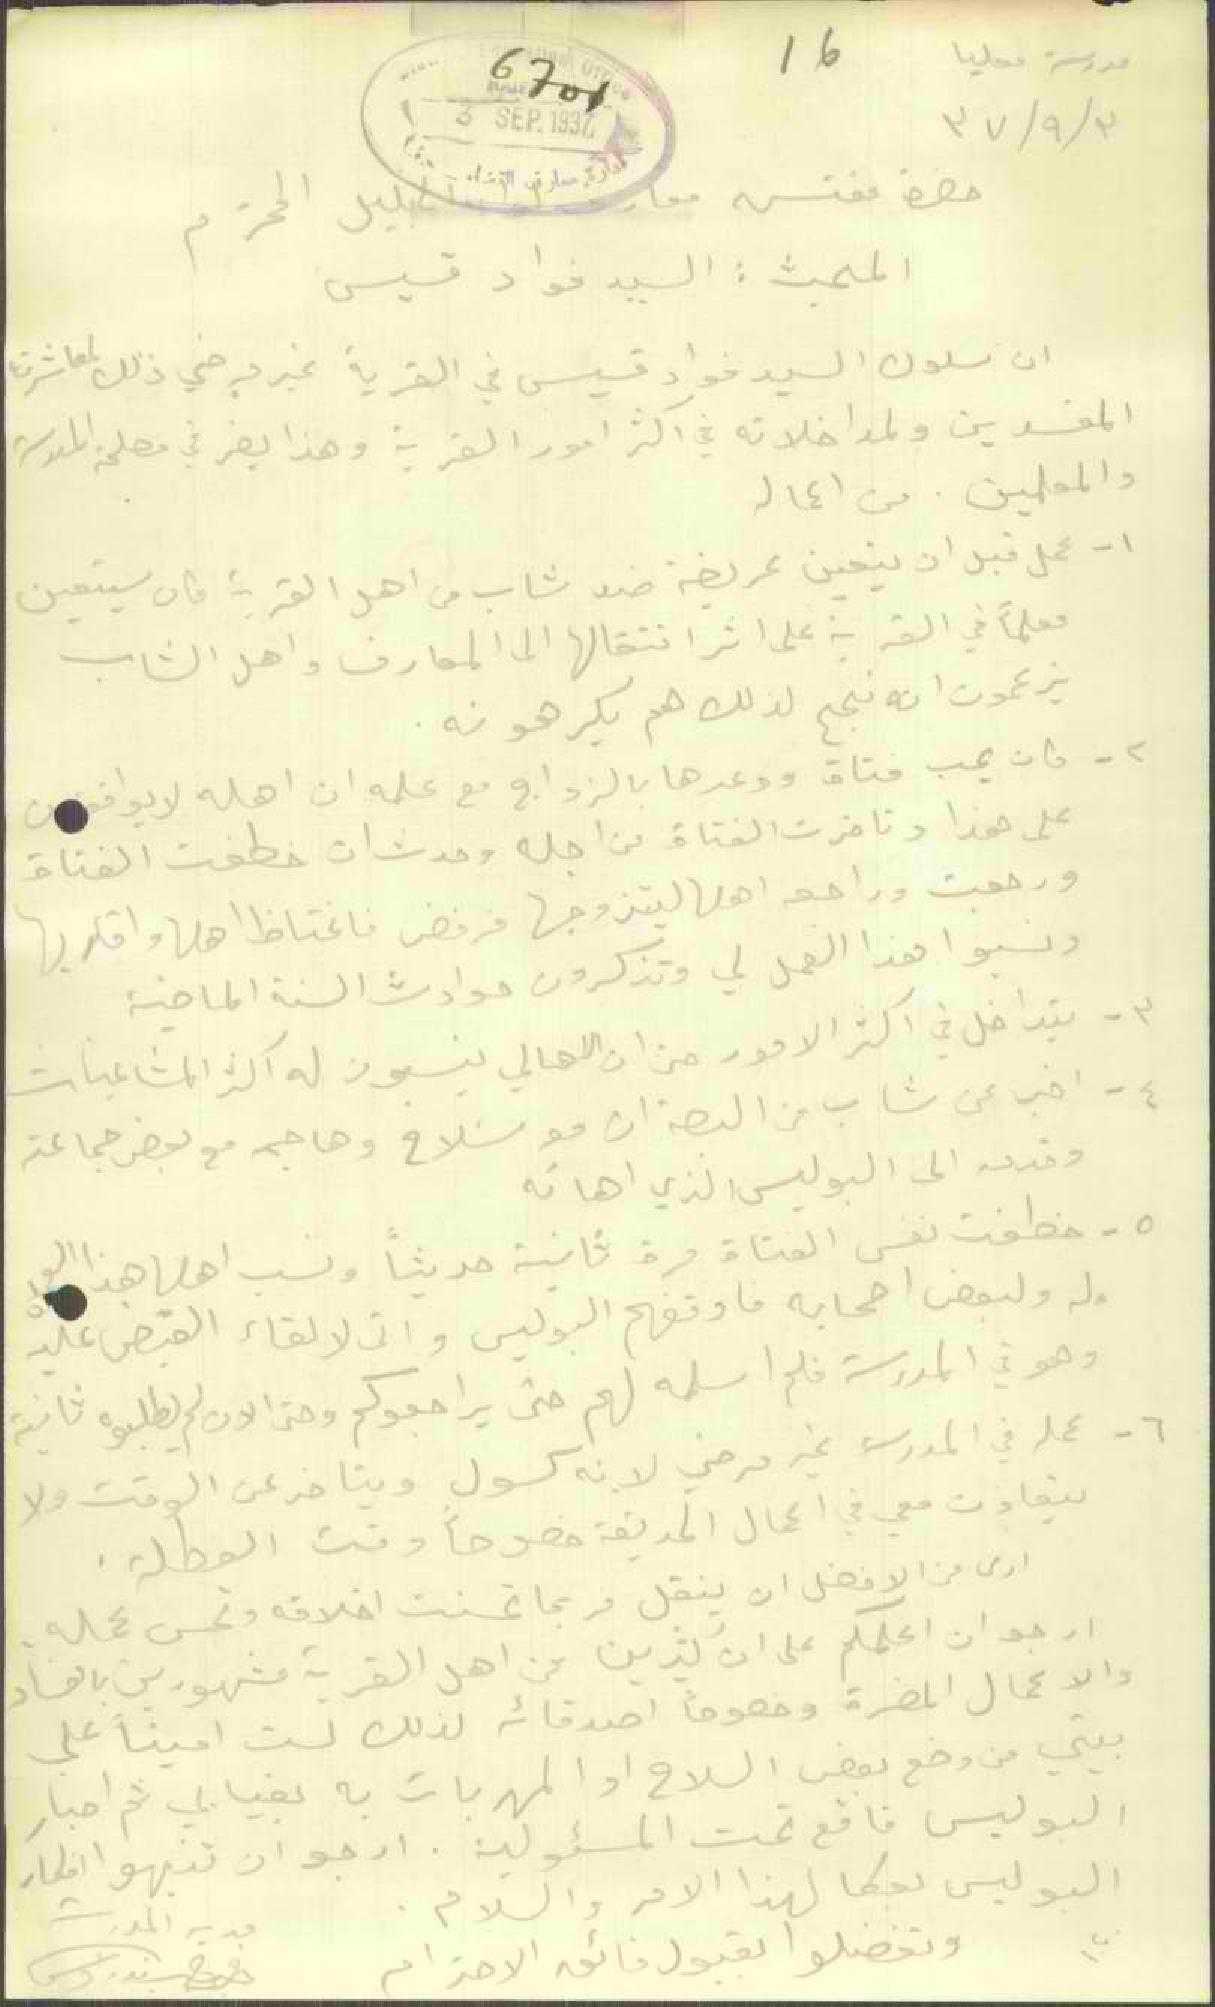 مدرسة معليا
16
٣٧/٩/٣
6701
3 SEP. 193
ادارة معارف
حضرة مفتش الجليل المحترم
المبحث : السيد فواد قسيس
ان سلوك السيد فواد قسيس في القرية غير مرضي ذلك لمعاشرته
المفسدين ولمداخلاته في اكثر امور القرية وهذا يضر في مصلحة المدرسة
والمعلمين . من اعماله
١- عمل قبل ان يتعين عريضة ضد شاب من اهل القرية كان سيتعين
معلماً في القرية على اثر انتقالها الى المعارف واهل الشاب
يزعمون انه نجح لذلك هم يكرهونه .
٢- كان يحب فتاة ووعدها بالزواج مع علمه ان اهله لا يوافقون
على هذا وتأخرت الفتاة من اجله وحدث ان خطفت الفتاة
ورجعت وراجعه اهلها ليتزوجها فرفض فاغتاظ اهلها واقاربها
ونسبوا هذا العمل لي وتذكرون حوادث السنة الماضية
٣- يتداخل في اكثر الامور حتى ان الاهالي ينسبون له اكثر المشاغبات
٤- اخبر عن شاب من البصة ان معه سلاح وهاجمه مع بعض جماعته
وقدمه الى البوليس الذي اهانه
٥- خطفت نفس الفتاة مرة ثانية حديثاً ونسب اهلها هذا
له ولبعض اصحابه فاوقفهم البوليس واتى لالقاء القبض عليه
وهو في المدرسة فلم اسلمه لهم حتى يراجعوكم وحتى الان لم يطلبوه ثانية
٦- عمله في المدرسة غير مرضي لانه كسول ويتأخر عن الوقت ولا
يتعاون معي في اعمال الحديقة خصوصاً وقت العطلة .
ارى من الافضل ان ينقل فربما تحسنت اخلاقه وتحسن عمله .
ارجو ان اعلمكم على ان كثيرين من اهل القرية مشهورين بالفساد
والاعمال المضرة وخصوصاً اصدقائه لذلك لست اميناً على
بيتي من وضع بعض السلاح او المهربات به بغيابي ثم اخبار
البوليس فاقع تحت المسئولية . ارجو ان تنبهوا افكار
البوليس لهذا الامر والسلام .
وتفضلوا بقبول فائق الاحترام
مدير المدرسة